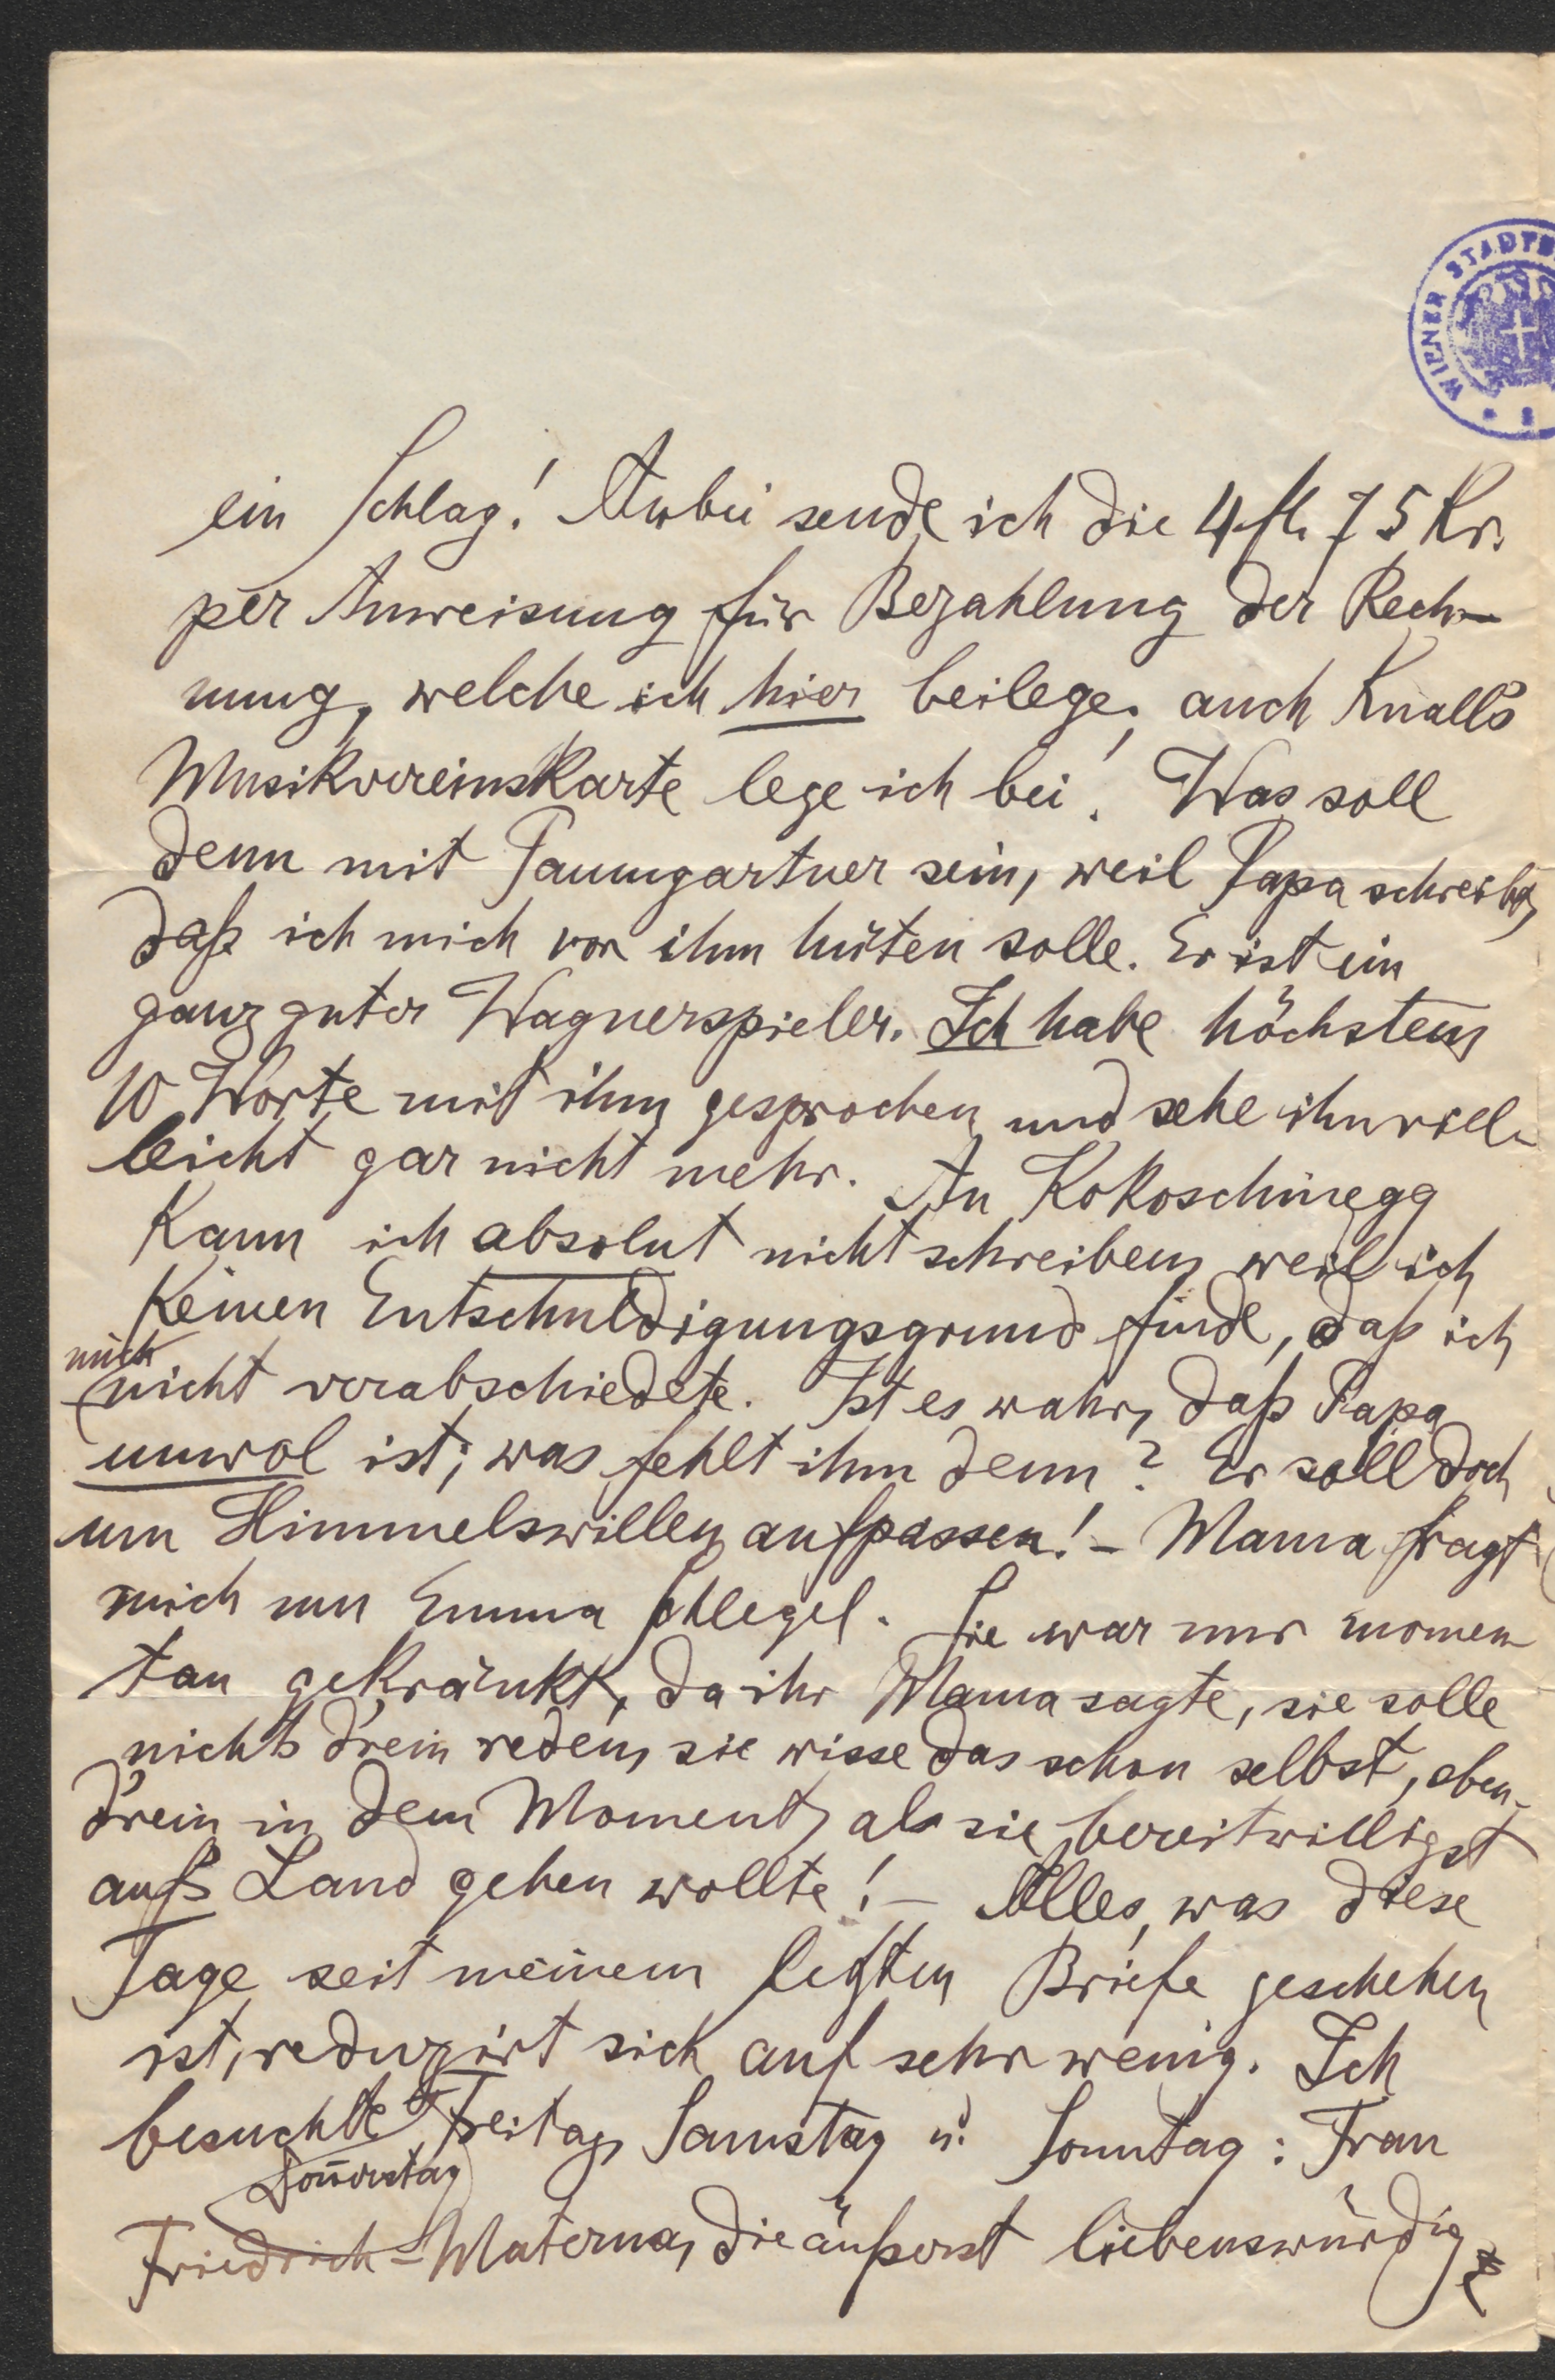 WIENER STADTB
ein Schlag! Anbei sende ich die 4 fl. 75 Kr.
per Anweisung für Bezahlung der Rech-
nung, welche ich hier beilege; auch Knall's
Musikvereinskarte lege ich bei! Was soll
denn mit Paumgartner sein, weil Papa schreibt,
daß ich mich vor ihm hüten solle. Er ist ein
ganz guter Wagnerspieler. Ich habe höchstens
10 Worte mit ihm gesprochen und sehe ihn viel-
leicht gar nicht mehr. An Kokoschinegg
kann ich absolut nicht schreiben, weil ich
keinen Entschuldigungsgrund finde, daß ich
mich
nicht verabschiedete. Ist es wahr, daß Papa
unwol ist; was fehlt ihm denn? Er soll doch
um Himmelswillen aufpassen! – Mama fragt
mich um Emma Schlegel. Sie war nur momen
tan gekränkt, da ihr Mama sagte, sie solle
nichts d'rein reden, sie wisse das schon selbst, oben-
d'rein in dem Moment, als sie bereitwilligst
auf's Land gehen wollte! – Alles, was diese
Tage seit meinem letzten Briefe geschehen
ist, reduzirt sich auf sehr wenig. Ich
besuchte Freitag, Samstag u. Sonntag: Frau
Donnerstag
Friedrich-Materna, die äußerst liebenswürdig